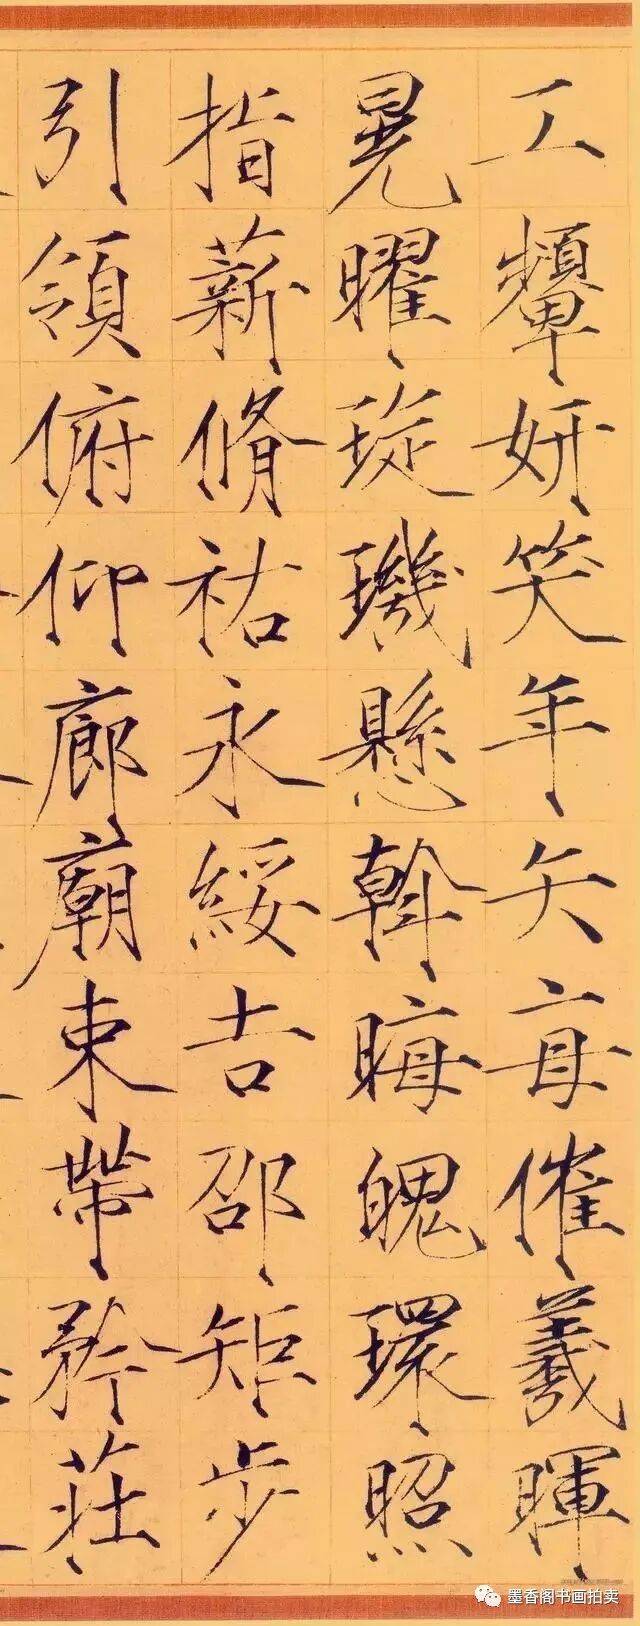 工顰妍笑年矢每催羲暉
晃曜琁璣懸斡晦魄環照
指薪脩祜永綏吉邵矩步
引領俯仰廊廟束帶矜莊
墨香阁书画拍卖